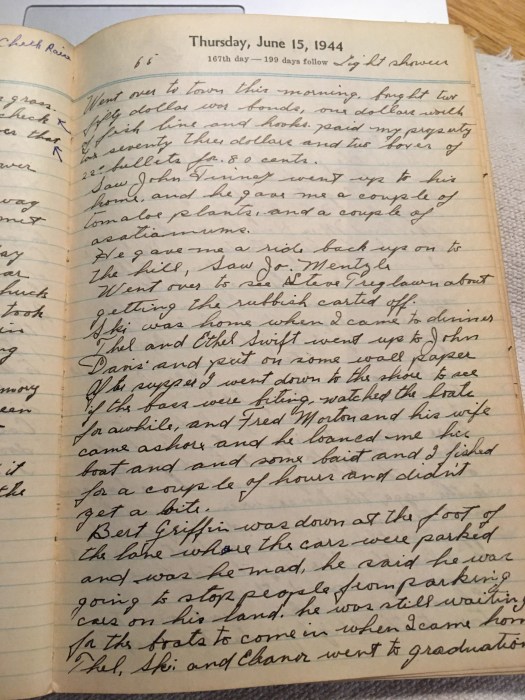 Check Raise
grass.
check
over that
over
way
ay
ar
huck
took
ing
een
it
the
Thursday, June 15, 1944
167th day — 199 days follow
65
Light shower
Went over to town this morning. bought two
fifty dollar war bonds, one dollars worth
of fish line and hooks. paid my property
tax seventy three dollars and two boxes of
22 bullets for .80 cents.
Saw John Finney went up to his
home, and he gave me a couple of
tomatoe plants, and a couple of
asatiamums.
He gave me a ride back up on to
the hill, Saw Jo. Mentzle
Went over to see Steve Treglawn about
getting the rubbish carted off.
Ski was home when I came to dinner
Thel and Ethel Swift went up to John
Davis' and put on some wall paper
After supper I went down to the shore to see
if the bass were biting. watched the boats
for awhile, and Fred Morton and his wife
came ashore and he loaned me his
boat and and some bait and I fished
for a couple of hours and didn't
get a bite.
Bert Griffin was down at the foot of
the lane where the cars were parked
and was he mad, he said he was
going to stop people from parking
cars on his land. he was still waiting
for the boats to come in when I came home
Thel, Ski and Eleanor went to graduation